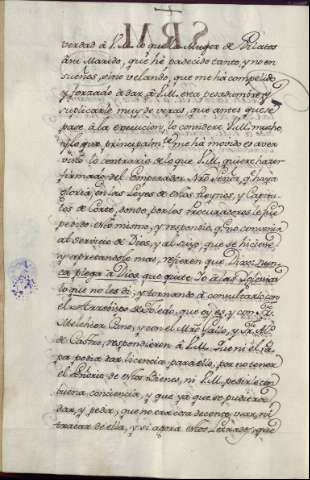 verdad à V.M. lo que la Muger de Pilatos
à su Marido, que hè padecido tanto, y no en
sueños, sino velando, que me hà compelido
y forzado à dar à V.M. esta pesadumbre, y
suplicarle muy de veras, que antes que se
pase à la execucion, lo considere V.M. mucho
y lo que principalm.te me hà movido es aver
visto lo contrario de lo que V.M. quiere hazer
firmado del Emperador Nro Señor, q haya
gloria, en las Leyes de estos Reynos, y Capitu-
los de Corte, donde por los Procuradores le fue
pedido esto mismo, y respondiò q no convenia
al servicio de Dios, y al suyo, que se hiciese,
y apretandole mas, refieren que Dixo: nun-
ca plega à Dios, que quite Yo à las Iglesias
lo que no les di, y tornando à consultarlo con
el Arzobispo de Toledo, que oy es, y con Fr.
Melchior Cano, y con el Mro Gallo, y Fr. Al.o
de Castro, respondieron à V.M. que ni el Pa-
pa podia dar licencia para ello, por no tener
el Dominio de estos Bienes, ni V.M. pedirla con
buena conciencia, y que ya que se pudiera
dar, y pedir, que no era cosa de conservar, ni
tratar de ella, y si agora estos Letrados, que